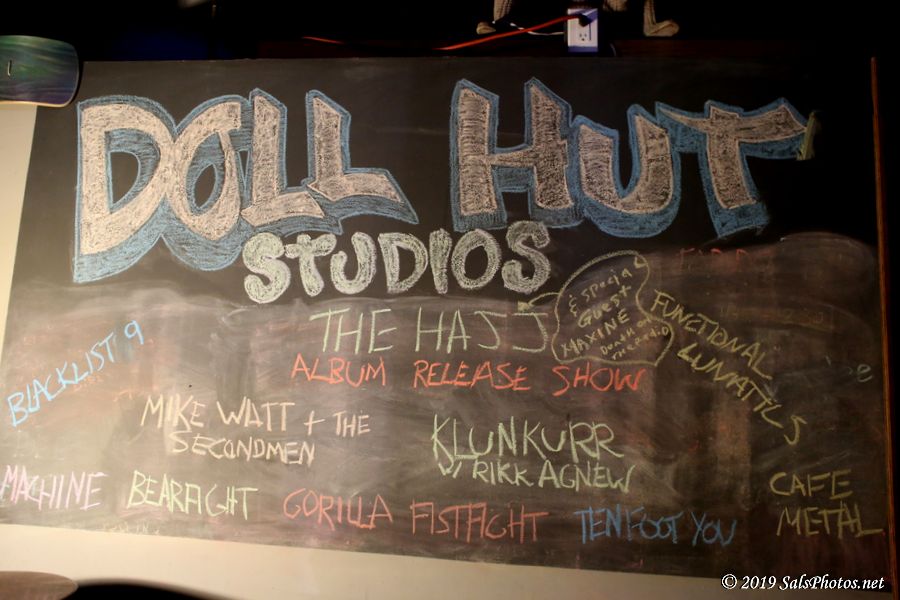 DOLL HUT
STUDIOS
THE HAJJ
& Special
Guest
MAXINE
Death on
the Radio
ALBUM RELEASE SHOW
FUNCTIONAL
LUNATICS
BLACKLIST 9
MIKE WATT + THE
SECONDMEN
KLUNKURR
W/ RIKK AGNEW
MACHINE
BEARFIGHT
GORILLA FISTFIGHT
TENFOOT YOU
CAFE
METAL
© 2019 SalsPhotos.net